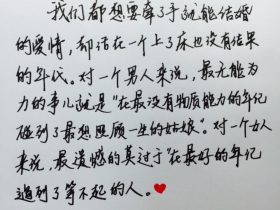 我们都想要牵了手就能结婚
的爱情，却活在一个上了床也没有结果
的年代。对一个男人来说，最无能为
力的事儿就是“在最没有物质能力的年纪
碰到了最想照顾一生的姑娘”。对一个女人
来说，最遗憾的莫过于“在最好的年纪
遇到了等不起的人。